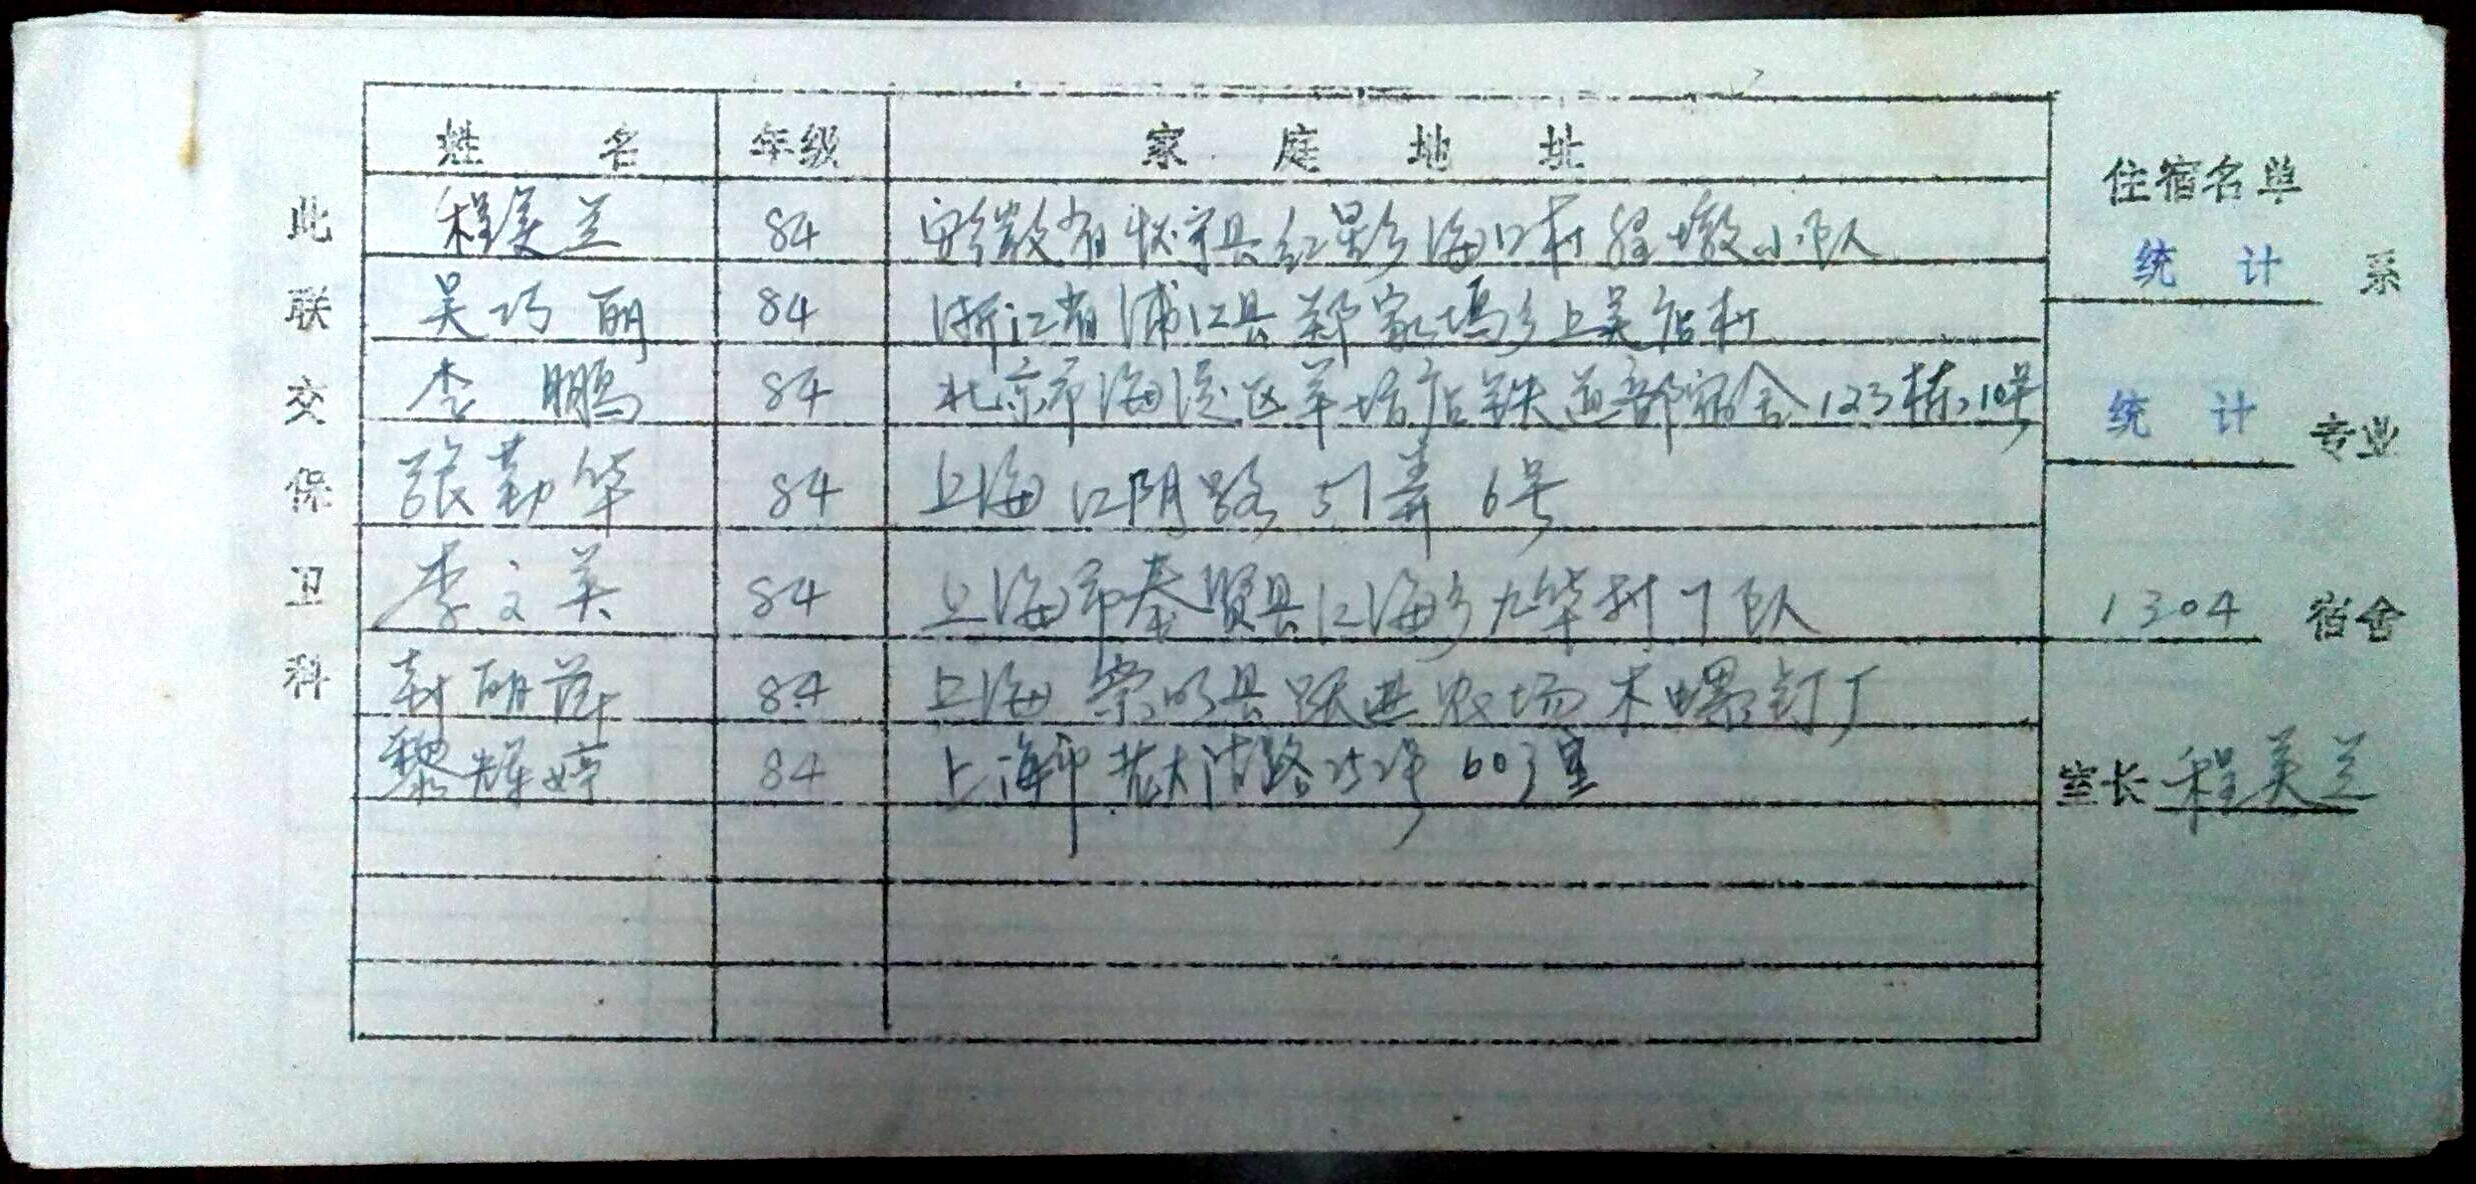 此联交保卫科
姓名 年级 家庭地址
程美兰 84 安徽省怀宁县红星乡海口村程墩小队
吴巧丽 84 浙江省浦江县郑家坞乡上吴店村
李鹏 84 北京市海淀区羊坊店铁道部宿舍123栋10号
张勤华 84 上海江阴路51弄6号
李文英 84 上海市奉贤县江海乡九华村7队
封丽萍 84 上海崇明县跃进农场木螺钉厂
黎辉婷 84 上海市 大沽路252号603室
住宿名单
统计系
统计专业
1304宿舍
室长程美兰